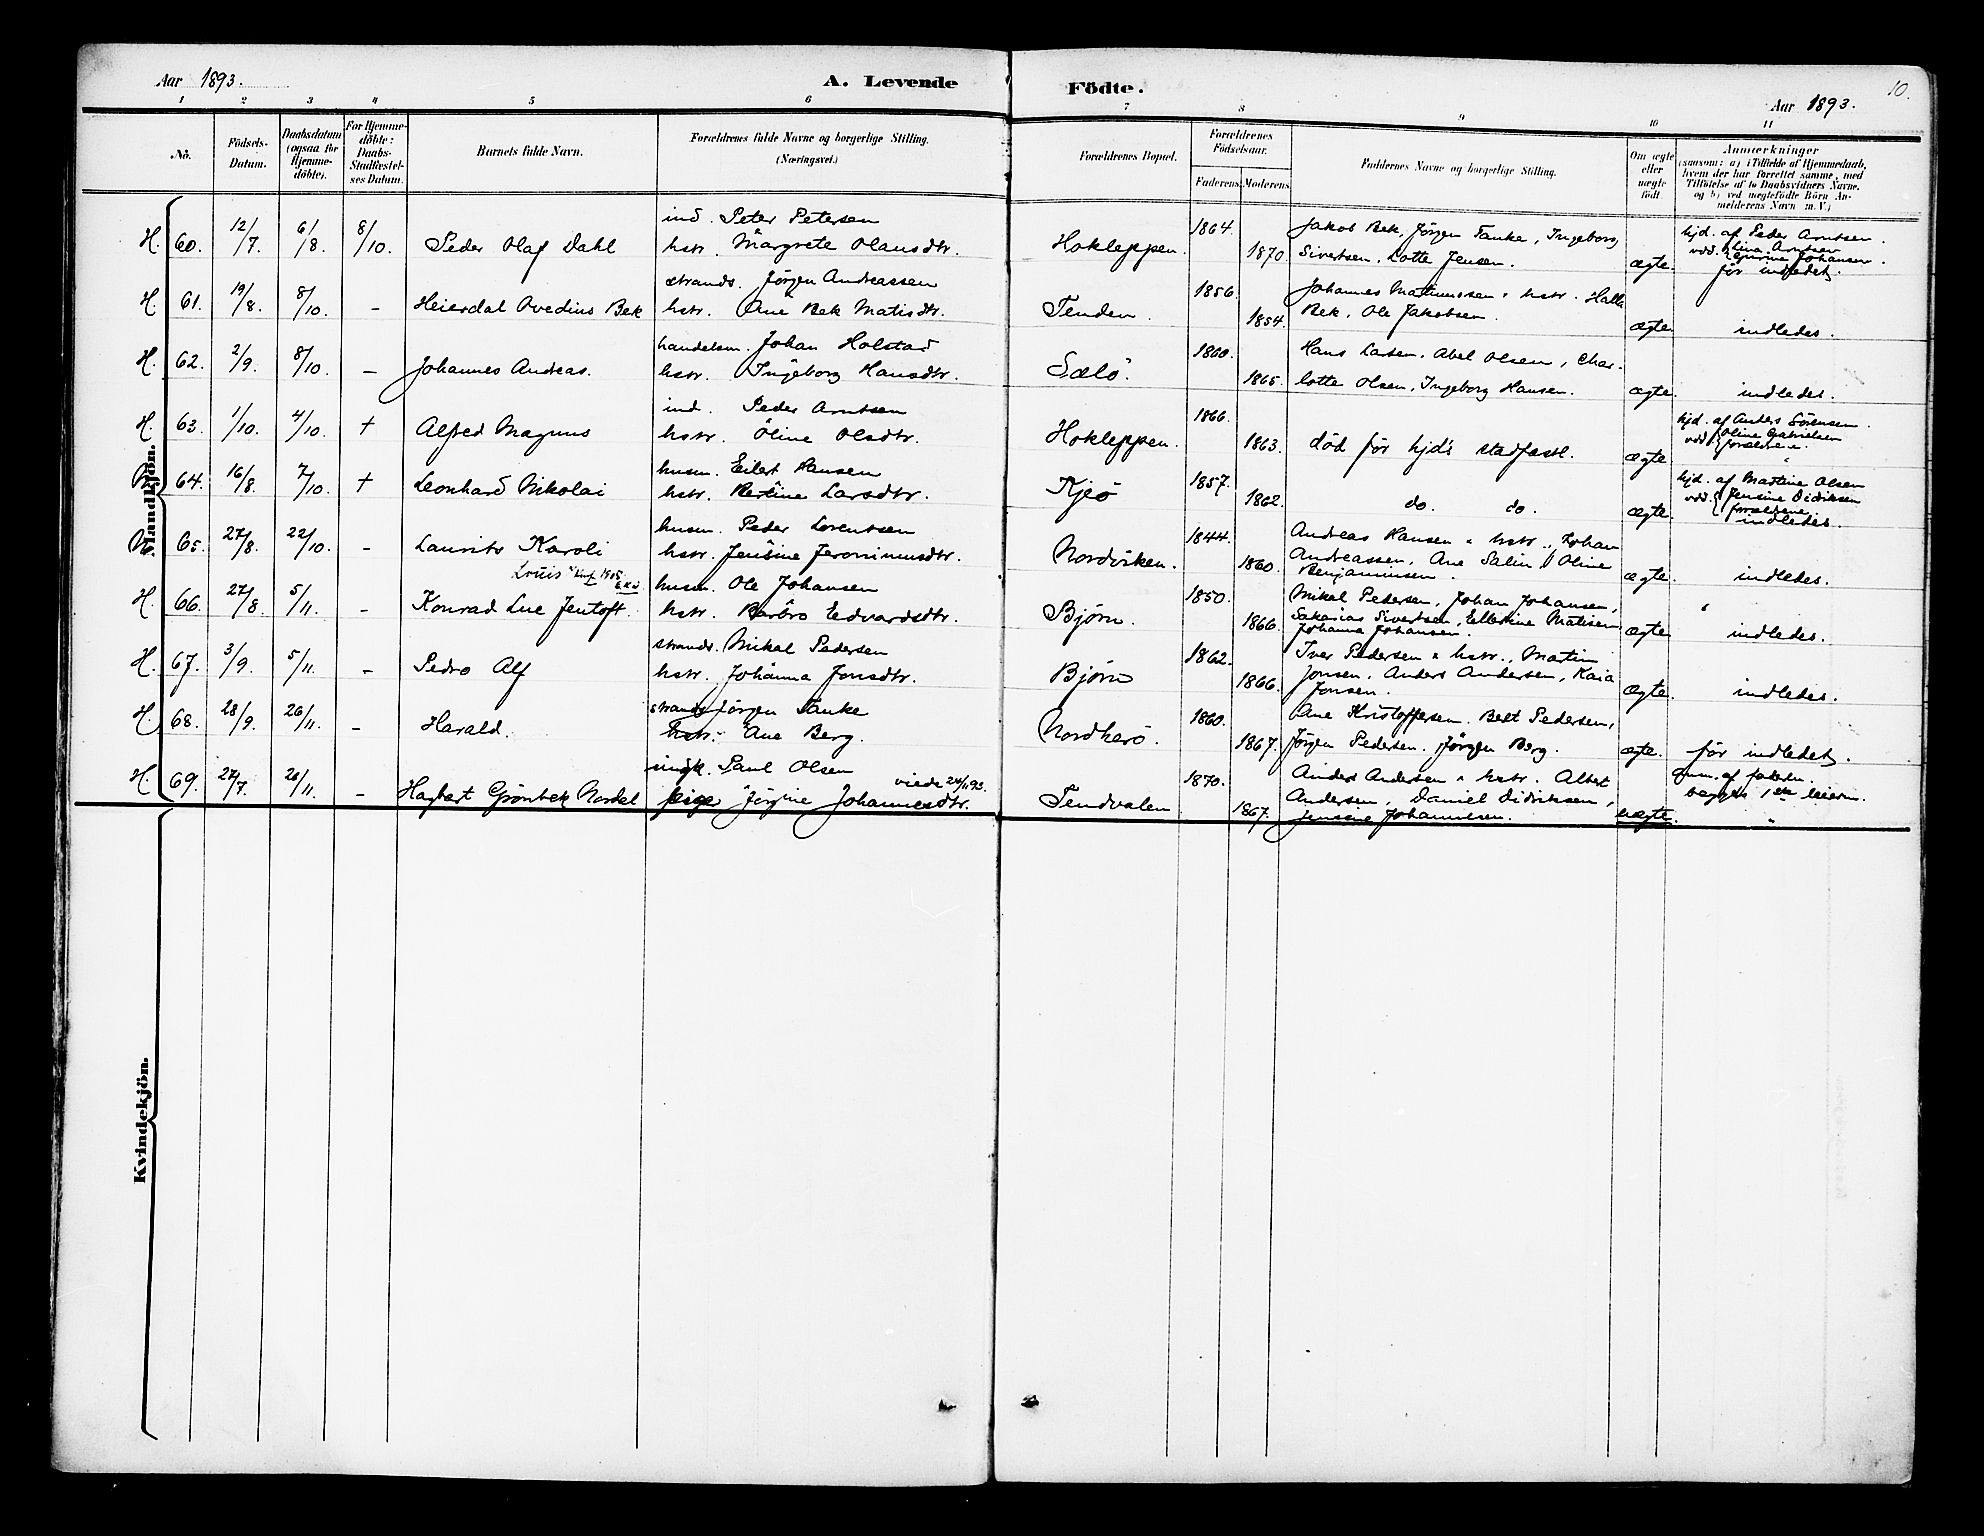 Aar 1893.
A. Levende Födte.
Aar 1893.
10.
1 2 3 4 5 6 7 8 9 10 11
No.
Födsels-Datum.
Daabsdatum (ogsaa for Hjemme-döbte).
For Hjemme-döbte: Daabs-Stadfæstel-ses Datum.
Barnets fulde Navn.
Forældrenes fulde Navne og borgerlige Stilling. (Næringsvei.)
Forældrenes Bopæl.
Forældrenes Födselsaar.
Faderens. Moderens.
Faddernes Navne og borgerlige Stilling.
Om ægte eller uægte födt.
Anmærkninger (saasom: a) i Tilfælde af Hjemmedaab, hvem der har forrettet samme, med Tilföielse af to Daabsvidners Navne, og b) ved uægtefödte Börn An-melderens Navn m. V.)
Mandkjön.
H. 60. 12/7 6/8 8/10. Peder Olaf Dahl
ind. Peter Petersen
hstr. Margrete Olausdtr.
Hokleppen. 1864. 1870
Jakob Bek, Jörgen Tanke, Ingeborg
Sivertsen, Lotte Jensen.
ægte.
hjd. af Peder Arntsen.
för indledet.
H. 61. 19/8. 8/10. - Heierdal Ovedius Bek
strands. Jörgen Andreassen
hstr. Ane Bek Matisdtr.
Tenden. 1856. 1854.
Bek, Ole Jakobsen.
ægte. indledes.
H. 62. 2/9. 8/10. - Johannes Andreas.
handelsm. Johan Holstad
hstr. Ingeborg Hansdtr.
Sælö. 1860. 1865.
Hans Larsen, Abel Olsen, Char-
lotte Olsen, Ingeborg Hansen.
ægte. indledes.
H. 63. 1/10. 4/10. + Alfred Magnus
ind. Peder Arntsen
hstr. Oline Olsdtr.
Hokleppen. 1866. 1863.
död för hjd's stadfæstl.
ægte.
hjd. af Anders Sörensen.
vdd. Oline Gabrielsen
forældrene.
64. 16/8. 7/10. + Leonhard Nikolai
husm. Eilert Hansen
hstr. Bertine Larsdtr.
Kjeö 1857. 1862.
do. do.
ægte.
hjd. af Martine Olsen
vdd. Jensine Didriksen
forældrene.
indledes.
65. 27/8. 22/10. - Laurits Karoli
husm. Peder Lorentsen
hstr. Jensine Jeronimusdtr.
Nordviken. 1844. 1860.
Andreas Hansen " hstr., Johan
Andreassen, Ane Salin, Oline
Benjaminsen.
ægte. indledes.
Louis
H. 66. 27/8. 5/11. - Konrad Lue Jentoft.
husm. Ole Johansen
hstr. Barbro Edvardsdtr.
Björn. 1850. 1866.
Mikal Pedersen, Johan Johansen,
Sakarias Sivertsen, Ellertine Matisen
Johanna Johansen.
ægte. indledes.
H. 67. 3/9. 5/11. - Pedro Alf
strands. Mikal Pedersen
hstr. Johanna Jonsdtr.
Björn 1862. 1866.
Iver Pedersen " hstr., Martin
Jonsen, Anders Andersen, Kaia
Jonsen.
ægte. indledes.
H. 68. 28/9. 26/11. - Harald.
strands. Jörgen Tanke
hstr. Ane Berg.
Nordherö. 1860. 1867.
Ane Kristoffersen, Bert Pedersen,
Jörgen Pedersen, Jörgen Berg.
ægte. för indledet.
H. 69. 27/7. 26/11. - Hagbart Grönbek Nordal
ungk. Paul Olsen
viede 24/11 93.
pige Jörgine Johannesdtr.
Tendvalen 1870. 1867.
Anders Andersen " hstr. Albert
Andersen, Daniel Didriksen,
Jensine Johannesen.
uægte.
anm. af faderen.
begges 1ste leierm.
Kvindekjön.